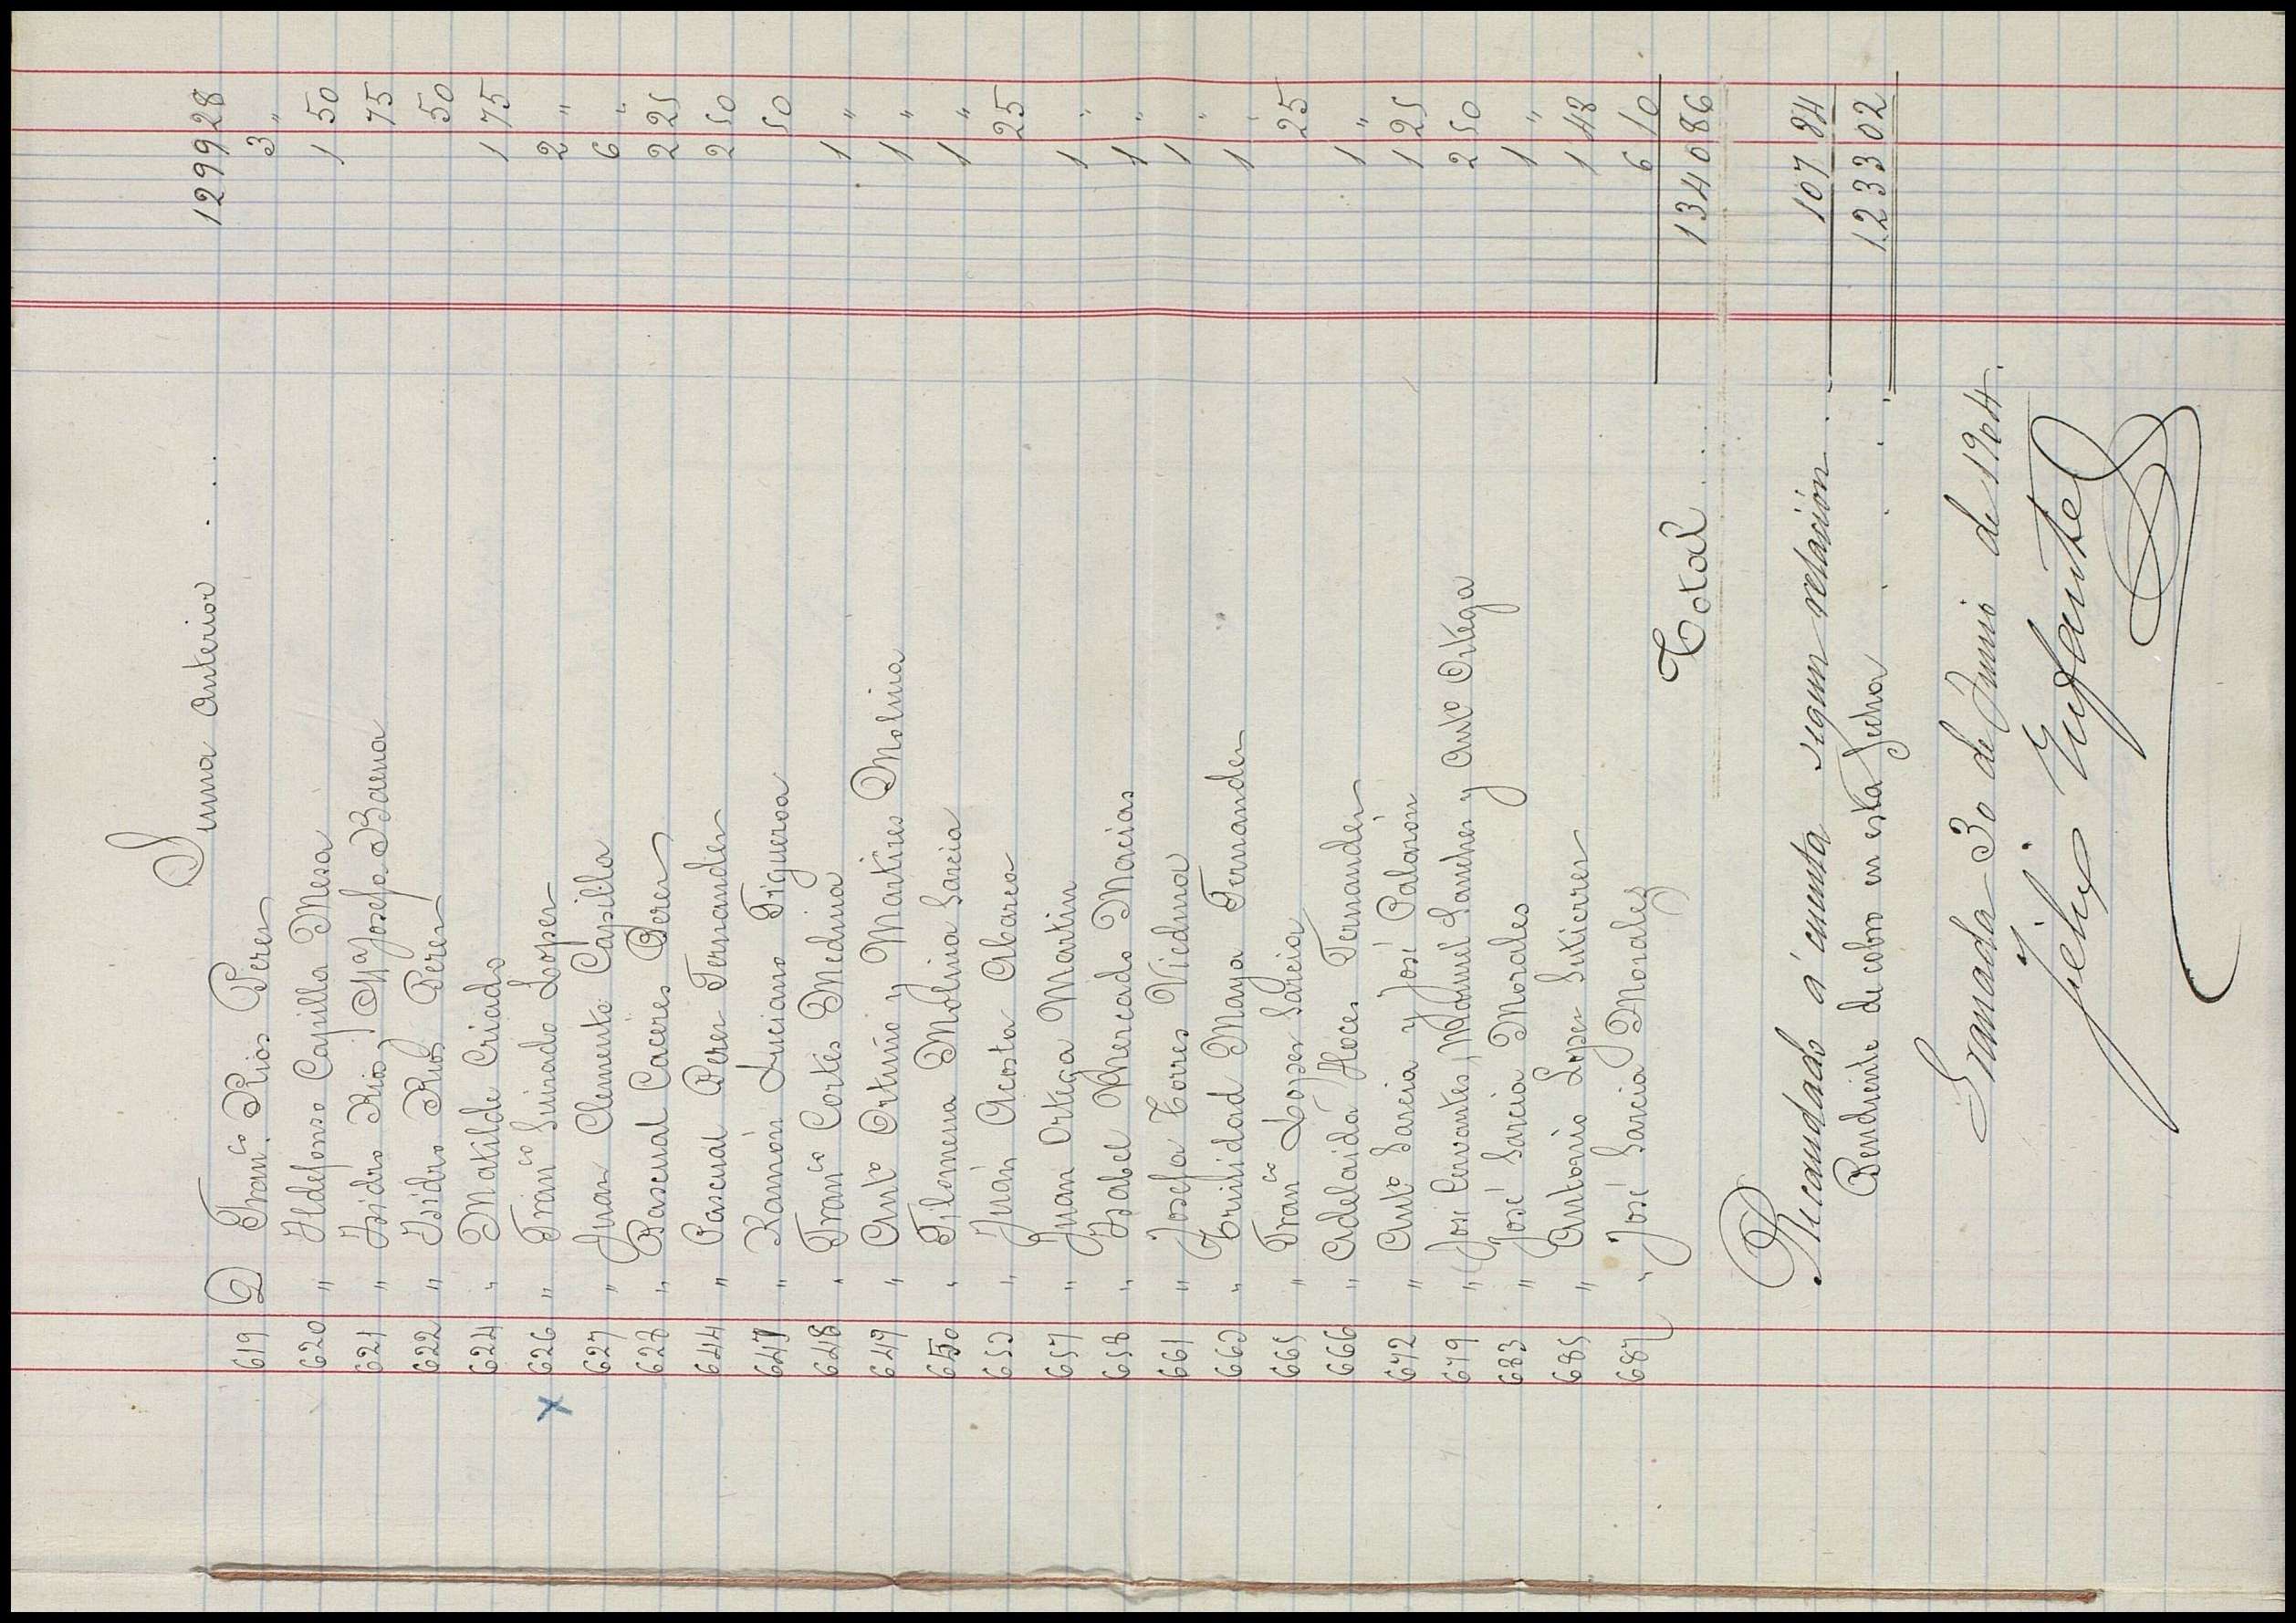 Suma anterior . . . 1299 28
619 D Franco Rios Perez 3 "
620 " Ildefonso Capilla Mesa 1 50
621 " Isidro Rios, Ma Josefa Baena 75
622 " Isidro Rios Perez 50
624 " Matilde Criado 1 75
x 626 " Franco Guirado Lopez 2 "
627 " Juan Clemente Capilla 6 "
628 " Pascual Caceres Perez 2 25
644 " Pascual Perez Fernandez 2 50
647 " Ramón Luciano Figueroa 50
648 " Franco Cortés Medina 1 "
649 " Anto Ortuño y Martires Molina 1 "
650 " Filomena Molina Garcia 1 "
652 " Juán Acosta Abarca 25
657 " Juan Ortega Martin 1 "
658 " Isabel Mercado Macias 1 "
661 " Josefa Torres Viedma 1 "
662 " Trinidad Maya Fernandez 1 "
665 " Franco Lopez Garcia 25
666 " Adelaida Hoces Fernandez 1 "
672 " Anto Garcia y José Palomón 1 25
679 " José Cervantes, Manuel Sanchez y Anto Ortega 2 50
683 " José Garcia Morales 1 "
685 " Antonio Lopez Gutierrez 1 48
687 " José Garcia Morales 6 10
Total . . . 1340 86
Recaudado á cuenta segun relación . 107 84
Pendiente de cobro en esta fecha . . . . 1233 02
Granada 30 de Junio de 1904.
Felix Infantes